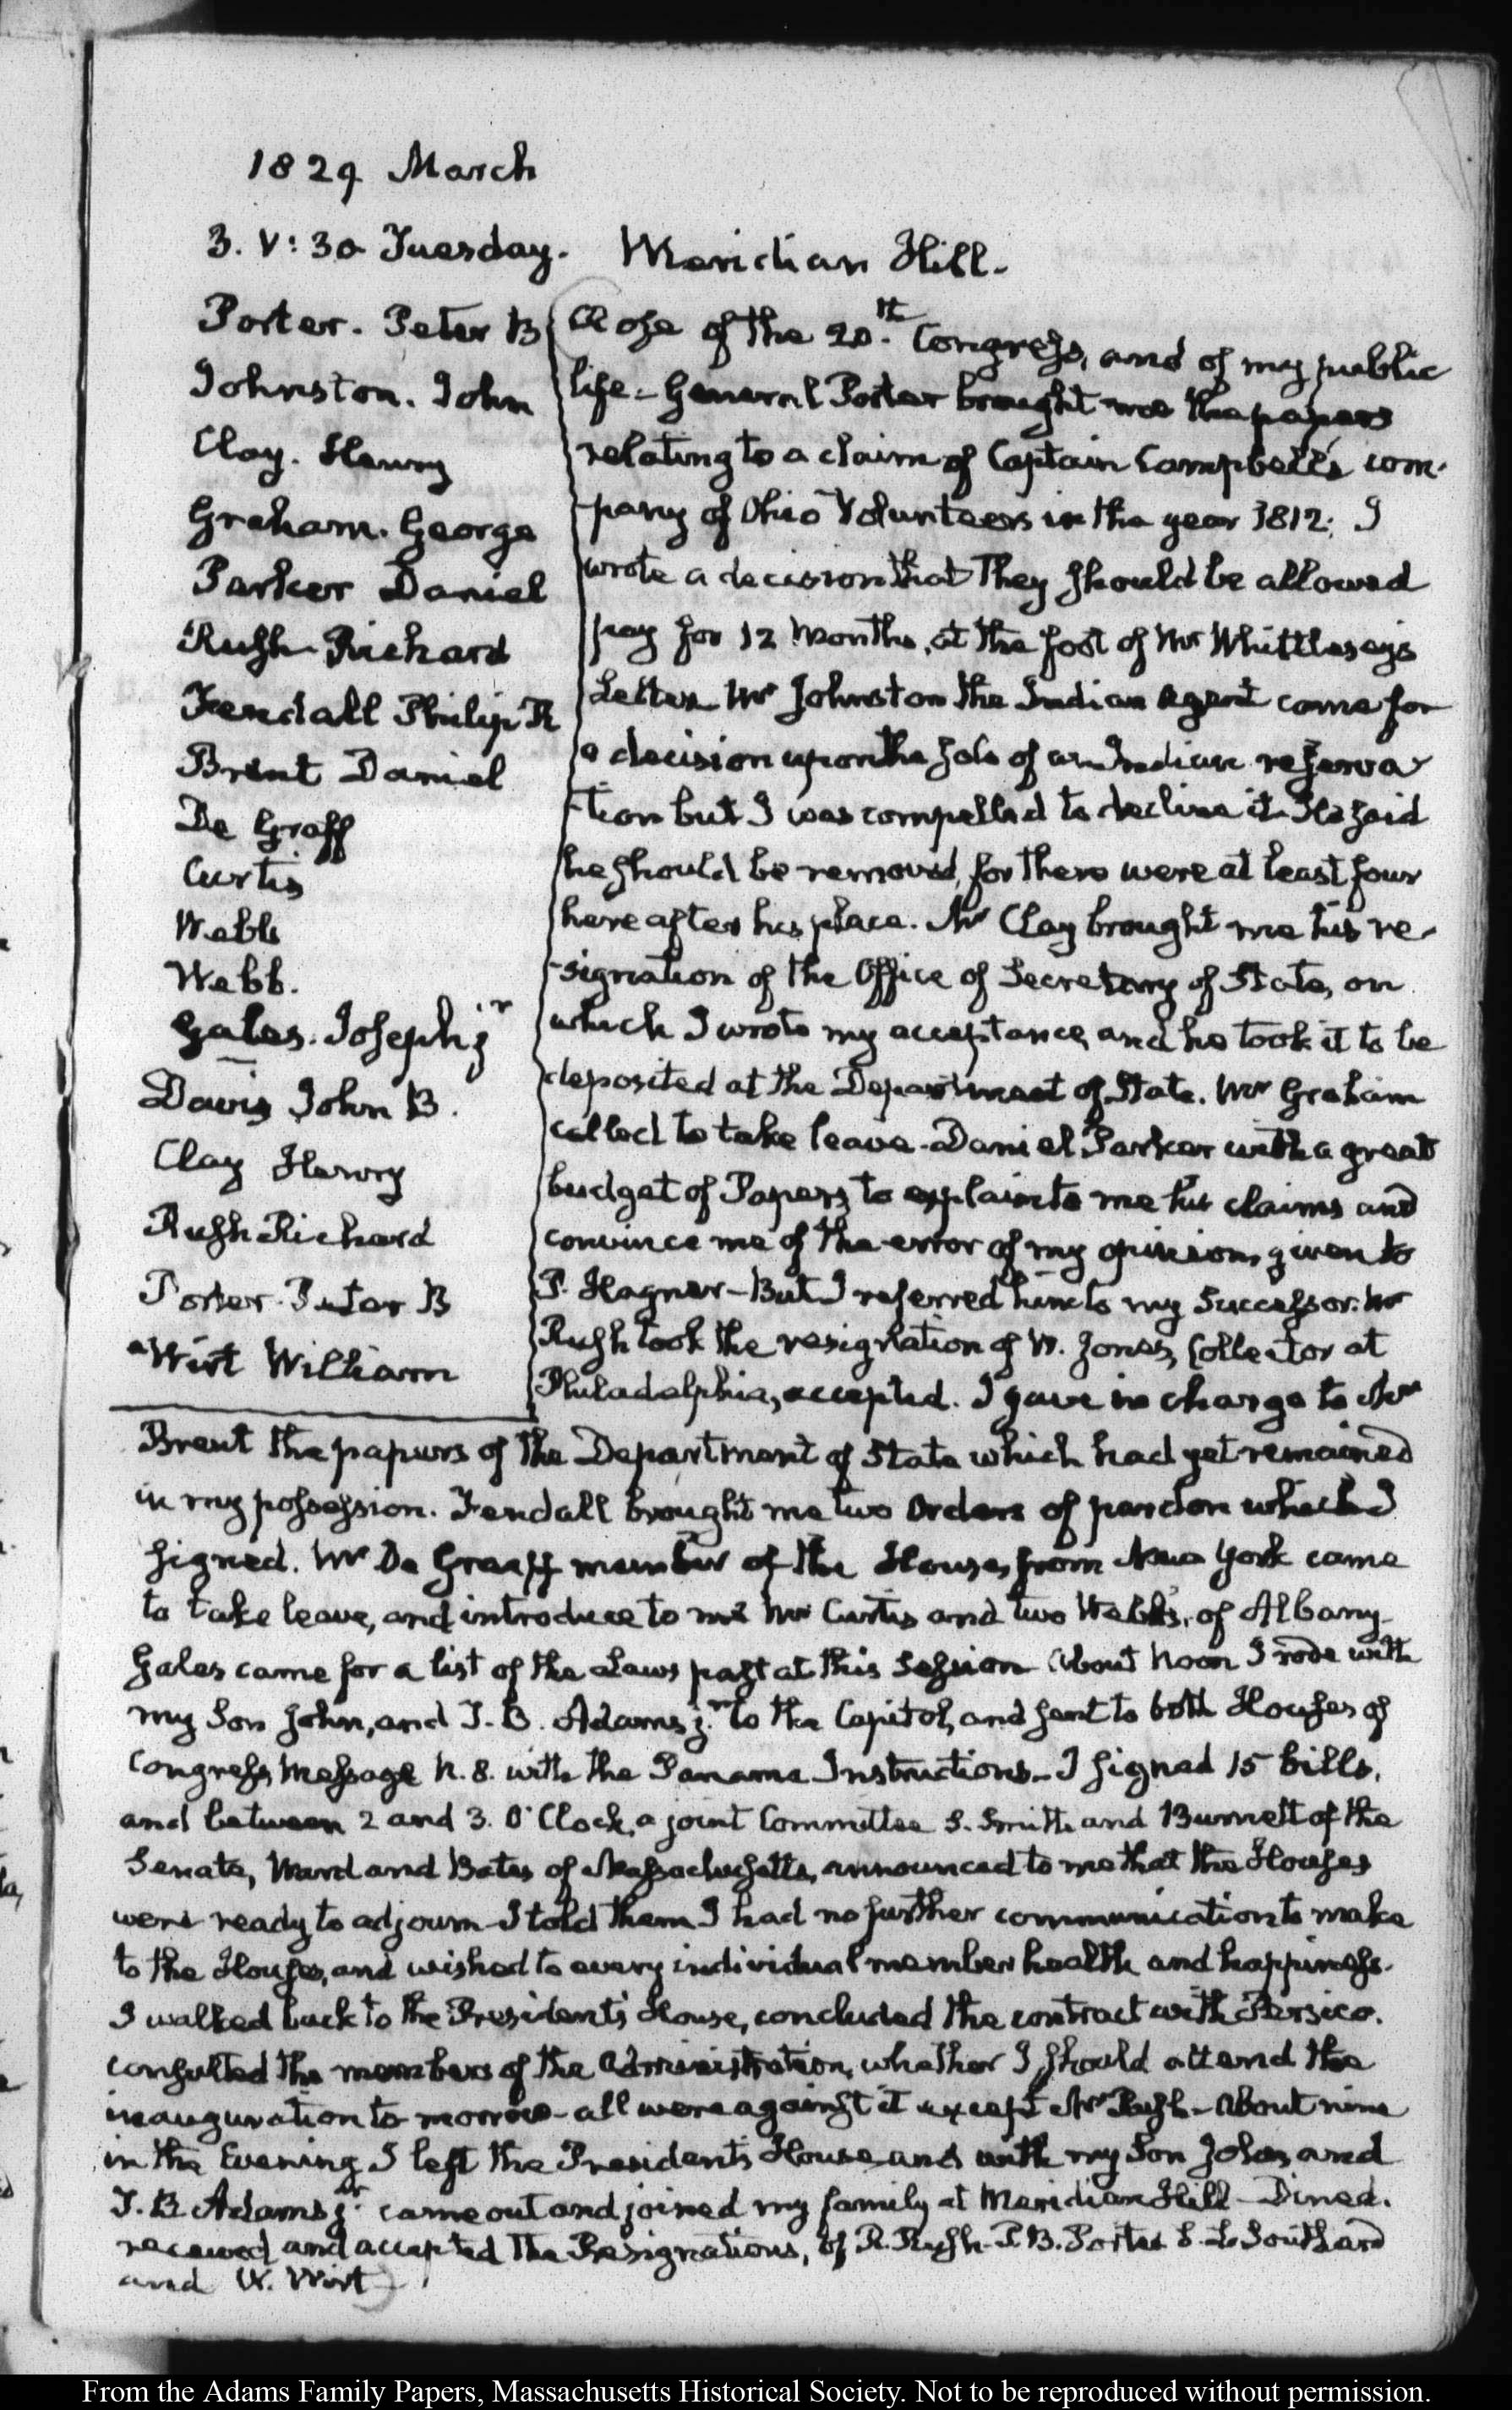 1829 March
3. V: 30 Tuesday. Meridian Hill.
Porter. Peter B
Johnston. John
Clay. Henry
Graham. George
Parker Daniel
Rush Richard
Fendall Philip R
Brent Daniel
De Graff
Curtis
Webb
Webb.
Gales. Joseph jr
Davis John B.
Clay Henry
Rush Richard
Porter. Peter B
Wirt William
Close of the 20.th Congress, and of my public
life - General Porter brought me the papers
relating to a claim of Captain Campbell's com-
-pany of Ohio Volunteers in the year 1812; I
wrote a decision that they should be allowed
pay for 12 Months, at the foot of Mr Whittlesey's
Letter. Mr Johnston the Indian Agent came for
a decision upon the sale of an Indian reserva
-tion but I was compelled to decline it. He said
he should be removed, for there were at least four
here after his place. Mr Clay brought me his re-
-signation of the Office of Secretary of State, on
which I wrote my acceptance, and he took it to be
deposited at the Department of State. Mr Graham
called to take leave - Daniel Parker with a great
budget of Papers, to explain to me his claims and
convince me of the error of my opinion, given to
P. Hagner - But I referred him to my Successor. Mr
Rush took the resignation of W. Jones, Collector at
Philadelphia, accepted. I gave in charge to Mr
Brent the papers of the Department of State which had yet remained
in my possession. Fendall brought me two Orders of pardon which I
signed. Mr De Graaff member of the House, from New York came
to take leave, and introduce to me Mr Curtis and two Webb's, of Albany -
Gales came for a list of the Laws past at this Session About Noon I rode with
my Son John, and T. B. Adams jr. to the Capitol, and sent to both Houses of
Congress Message N. 8. with the Panama Instructions - I signed 15 bills,
and between 2 and 3. O'Clock, a joint Committee S. Smith and Burnett of the
Senate, Ward and Bates of Massachusetts, announced to me that the Houses
were ready to adjourn - I told them I had no further communication to make
to the Houses, and wished to every individual member health and happiness.
I walked back to the President's House, concluded the contract with Persico.
consulted the members of the Administration, whether I should attend the
inauguration to-morrow - all were against it except Mr Rush - About nine
in the Evening I left the President's House and with my Son John, and
T. B. Adams jr. came out and joined my family at Meridian Hill - Dined.
received and accepted the Resignations, of R. Rush - P. B. Porter S. L. Southard
and W. Wirt
From the Adams Family Papers, Massachusetts Historical Society. Not to be reproduced without permission.